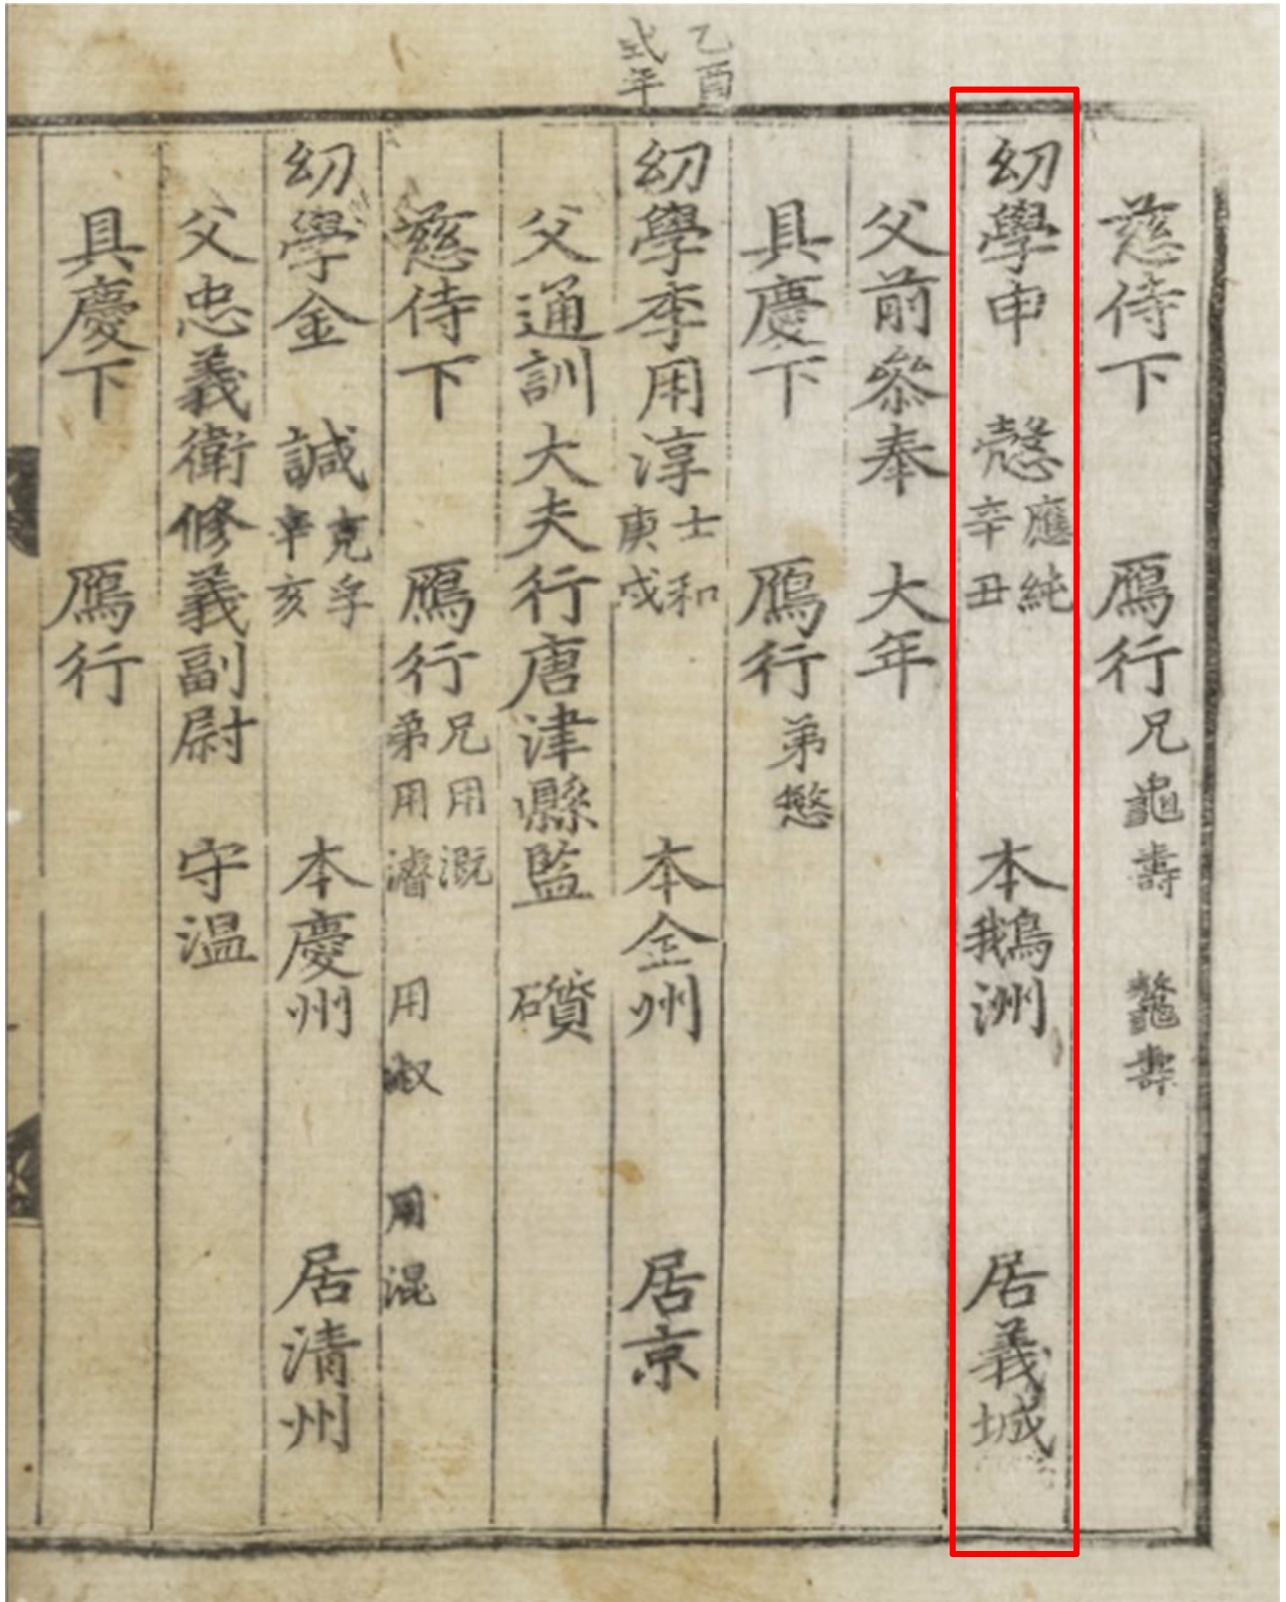 慈侍下 鴈行 兄龜壽 鼇壽
㓜學申 慤 應純 辛丑 本鵝洲 居義城
父前叅奉 大年
具慶下 鴈行 弟慜
乙酉
式年
㓜學李用淳 士和 庚戌 本全州 居京
父通訓大夫行唐津縣監 礩
慈侍下 鴈行 兄用溉 弟用濬 用淑 用混
㓜學金 諴 克孚 辛亥 本慶州 居清州
父忠義衛修義副尉 守温
具慶下 鴈行